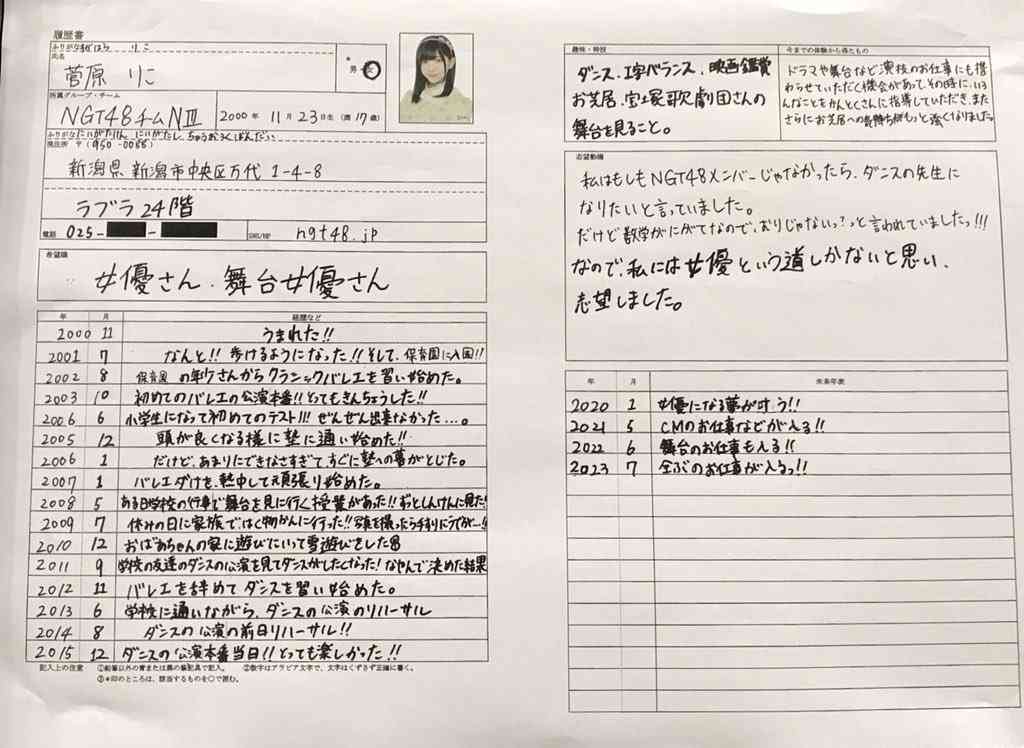 履歴書
ふりがな すがはら りこ
氏名
菅原 りこ
*
男・女
所属グループ・チーム
NGT48 チームNⅢ
2000年 11月 23日生 (満17歳)
ふりがな にいがたけん にいがたし ちゅうおうくばんだい
現住所 〒(950-0088)
新潟県 新潟市中央区万代 1-4-8
ラブラ2 4階
電話 025- -
SNS/HP ngt48.jp
希望職
女優さん、舞台女優さん
年 月 経歴など
2000 11 うまれた!!
2001 7 なんと!! 歩けるようになった!! そして、保育園に入園!!
2002 8 保育園 の年少さんからクラシックバレエを習い始めた。
2003 10 初めてのバレエの公演本番!! とってもきんちょうした!!
2006 6 小学生になって初めてのテスト!!! ぜんぜん出来なかった…。
2005 12 頭が良くなる様に塾に通い始めた!!
2006 1 だけど、あまりにできなさすぎて、すぐに塾への幕がとじた。
2007 1 バレエだけを、熱中して頑張り始めた。
2008 5 ある日学校の行事で舞台を見に行く授業があった!! ずっとしんけんに見た!
2009 7 休みの日に家族で、はく物かんに行った!! 写真を撮ったら
2010 12 おばあちゃんの家に遊びにいって雪遊びをした
2011 9 学校の友達のダンスの公演を見てダンスがしたくなった! なやんで決めた結果
2012 11 バレエを辞めてダンスを習い始めた。
2013 6 学校に通いながら、ダンスの公演のリハーサル
2014 8 ダンスの公演の前日リハーサル!!
2015 12 ダンスの公演本番当日!! とっても楽しかった!!
記入上の注意 ①鉛筆以外の青または黒の筆記具で記入。 ②数字はアラビア文字で、文字はくずさず正確に書く。
③*印のところは、該当するものを○で囲む。
趣味・特技
ダンス、I字バランス、映画鑑賞
お芝居、宝塚歌劇団さんの
舞台を見ること。
今までの体験から得たもの
ドラマや舞台など演技のお仕事にも携
わらせていただく機会があって、その時に、いろ
んなことをかんとくさんに指導していただき、また
さらにお芝居への気持ちがもっと強くなりました。
志望動機
私はもしもNGT48メンバーじゃなかったら、ダンスの先生に
なりたいと言っていました。
だけど数学がにがてなので、むりじゃないっ?っと言われていましたっ!!!
なので、私には女優という道しかないと思い、
志望しました。
年 月 未来年表
2020 1 女優になる夢が叶う!!
2021 5 CMのお仕事などが入る!!
2022 6 舞台のお仕事も入る!!
2023 7 全ぶのお仕事が入るっ!!